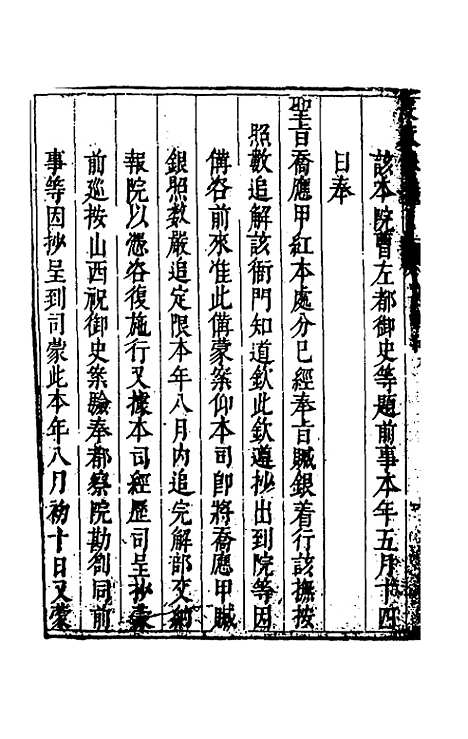 該本院曹左都御史等題前事本年五月十四
日奉
聖旨喬應甲紅本處分已經奉旨贓銀着行該撫按
照數追解該衙門知道欽此欽遵抄出到院等因
備咨前來准此備蒙案仰本司即將喬應甲贓
銀照数嚴追定限本年八月内追完解部交納
報院以憑咨復施行又據本司經歷司呈抄蒙
前巡按山西祝御史案驗奉都察院勘劄同前
事等因抄呈到司蒙此本年八月初十日又蒙